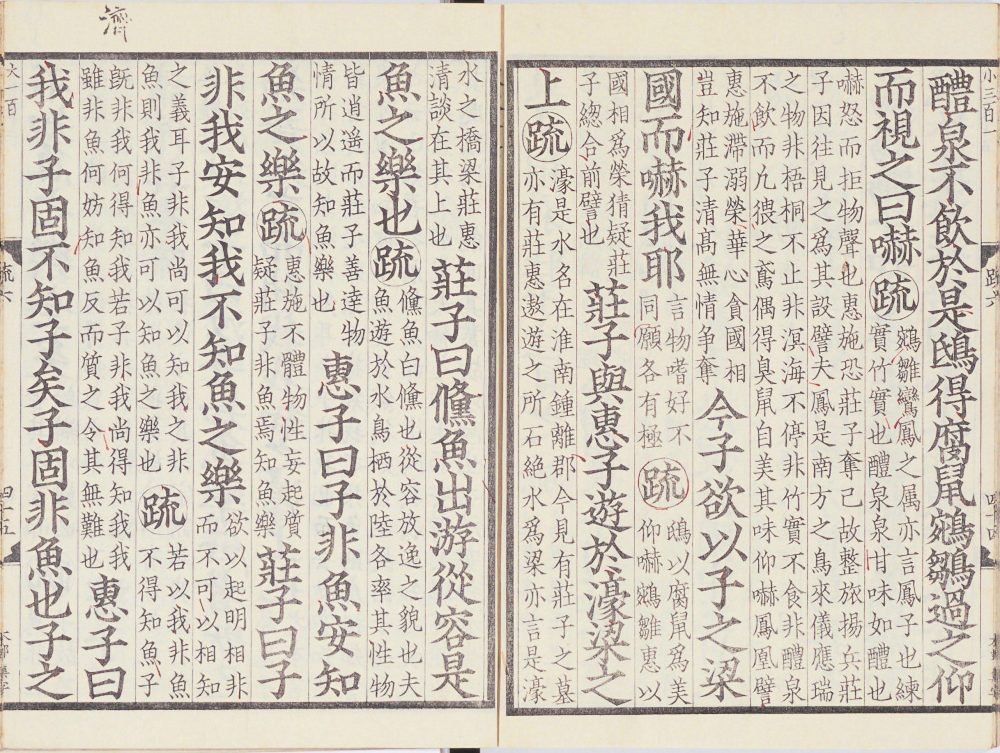 小三百一
醴泉不飲於是鴟得腐鼠鵷鶵過之仰
而視之曰嚇 疏
鵷雛鸞鳳之属亦言鳳子也練
實竹實也醴泉泉甘味如醴也
嚇怒而拒物聲也惠施恐莊子奪己故整旅揚兵莊
子因往見之爲其設譬夫鳳是南方之鳥來儀應瑞
之物非梧桐不止非溟海不停非竹實不食非醴泉
不飲而凢猥之鳶偶得臭鼠自美其味仰嚇鳳凰譬
惠施滯溺榮華心貪國相
豈知莊子清髙無情争奪
今子欲以子之梁
國而嚇我耶
言物嗜好不
同願各有極
疏
鴟以腐鼠爲美
仰嚇鵷雛惠以
國相爲榮猜疑莊
子緫合前譬也
莊子與惠子遊於濠梁之
上 疏
濠是水名在淮南鍾離郡今見有莊子之墓
亦有莊惠遨遊之所石絶水爲梁亦言是濠
水之橋梁莊惠
清談在其上也
莊子曰儵魚出游從容是
魚之樂也 疏
儵魚白儵也從容放逸之貌也夫
魚遊於水鳥栖於陸各率其性物
皆逍遥而莊子善達物
情所以故知魚樂也
惠子曰子非魚安知
魚之樂 疏
惠施不體物性妄起質
疑莊子非魚焉知魚樂
莊子曰子
非我安知我不知魚之樂
欲以起明相非
而不可以相知
之義耳子非我尚可以知我之非
魚則我非魚亦可以知魚之樂也
疏
若以我非魚
不得知魚子
既非我何得知我若子非我尚得知我我
雖非魚何妨知魚反而質之令其無難也
惠子曰
我非子固不知子矣子固非魚也子之
大一百
疏六
四十五